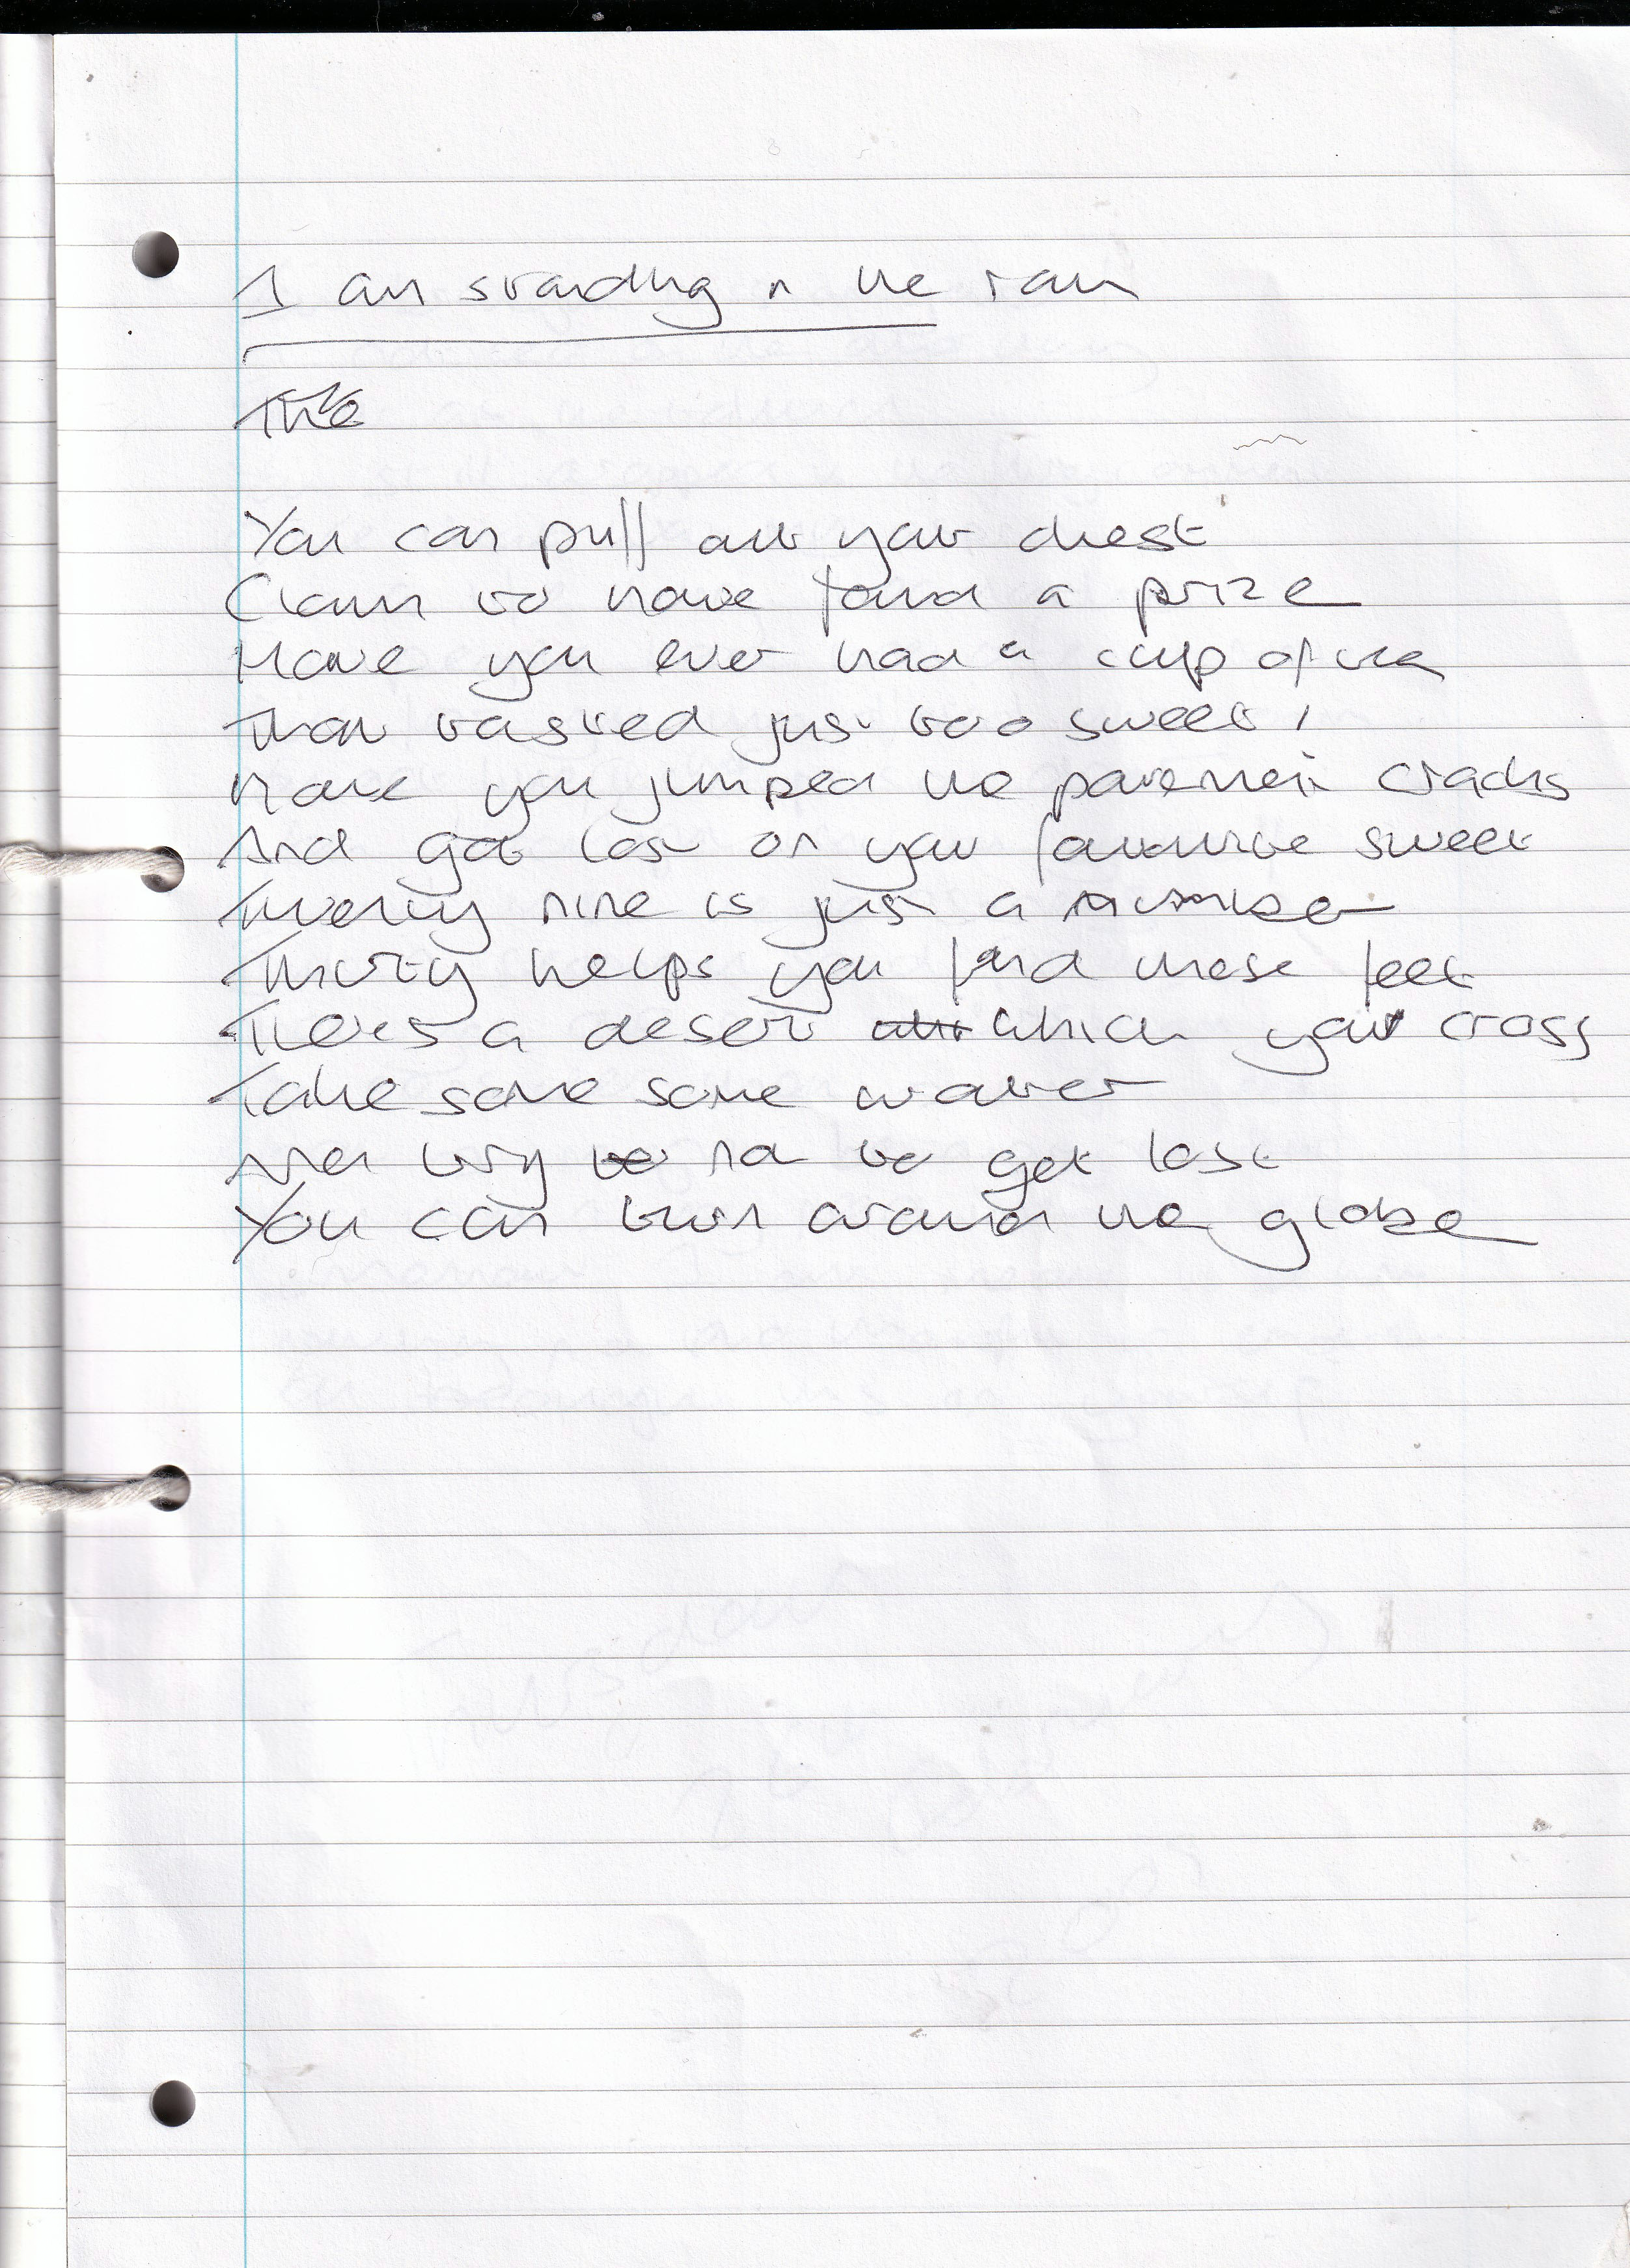 I am standing in the rain
The
You can puff out your chest
Claim to have found a prize
Have you ever had a cup of tea
That tasted just too sweet!
Have you jumped the pavement cracks
And got lost on your favourite sweet
Twenty nine is just a number
Thirty helps you find those feet
There's a desert which you cross
Take some some water
And try to not to get lost
You can turn around the globe